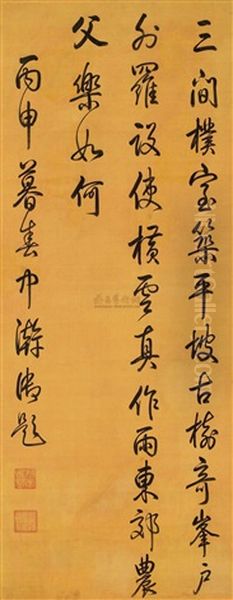 三間樸室築平坡古樹奇峯户
外羅設使橫雲真作雨東郊農
父樂如何
丙申暮春中澣御題